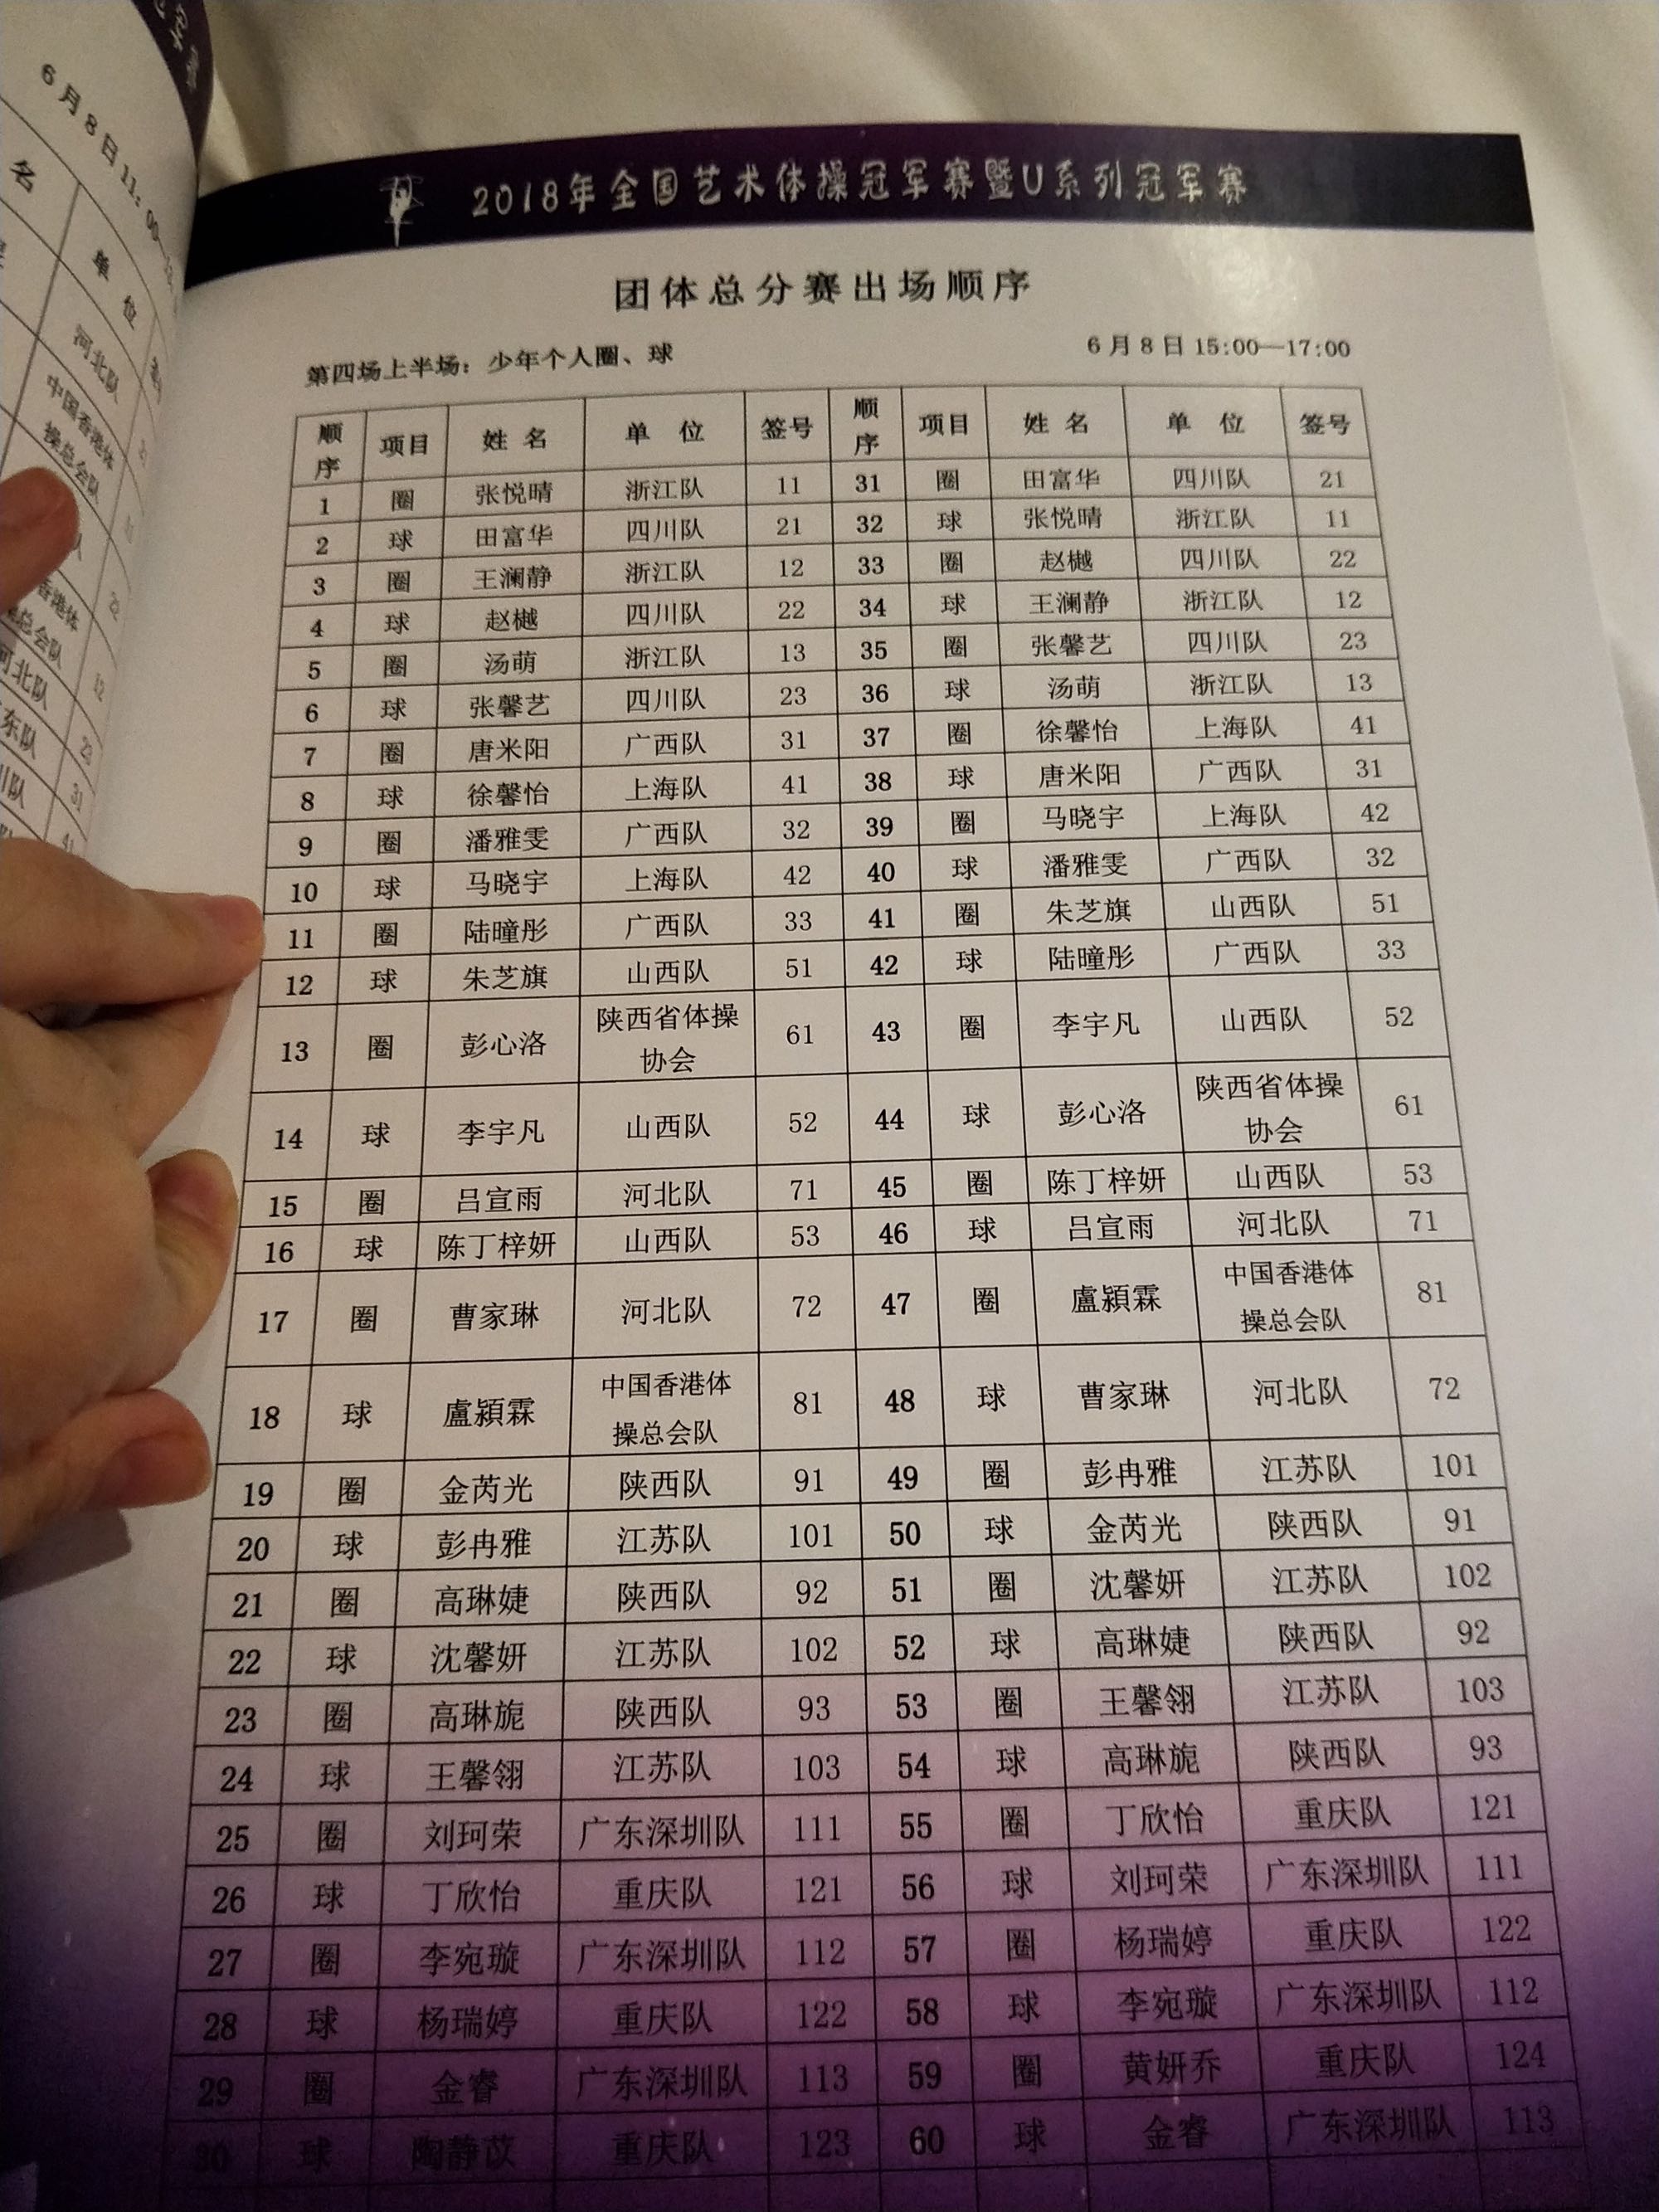 6月8日11:00
名
单 位
河北队
中国香港体
操总会队
香港体
总会队
河北队
东队
川队
2018年全国艺术体操冠军赛暨U系列冠军赛
团体总分赛出场顺序
第四场上半场：少年个人圈、球 6月8日15:00—17:00
顺序 项目 姓名 单位 签号 顺序 项目 姓名 单位 签号
1 圈 张悦晴 浙江队 11 31 圈 田富华 四川队 21
2 球 田富华 四川队 21 32 球 张悦晴 浙江队 11
3 圈 王澜静 浙江队 12 33 圈 赵樾 四川队 22
4 球 赵樾 四川队 22 34 球 王澜静 浙江队 12
5 圈 汤萌 浙江队 13 35 圈 张馨艺 四川队 23
6 球 张馨艺 四川队 23 36 球 汤萌 浙江队 13
7 圈 唐米阳 广西队 31 37 圈 徐馨怡 上海队 41
8 球 徐馨怡 上海队 41 38 球 唐米阳 广西队 31
9 圈 潘雅雯 广西队 32 39 圈 马晓宇 上海队 42
10 球 马晓宇 上海队 42 40 球 潘雅雯 广西队 32
11 圈 陆曈彤 广西队 33 41 圈 朱芝旗 山西队 51
12 球 朱芝旗 山西队 51 42 球 陆曈彤 广西队 33
13 圈 彭心洛 陕西省体操协会 61 43 圈 李宇凡 山西队 52
14 球 李宇凡 山西队 52 44 球 彭心洛 陕西省体操协会 61
15 圈 吕宣雨 河北队 71 45 圈 陈丁梓妍 山西队 53
16 球 陈丁梓妍 山西队 53 46 球 吕宣雨 河北队 71
17 圈 曹家琳 河北队 72 47 圈 盧潁霖 中国香港体操总会队 81
18 球 盧潁霖 中国香港体操总会队 81 48 球 曹家琳 河北队 72
19 圈 金芮光 陕西队 91 49 圈 彭冉雅 江苏队 101
20 球 彭冉雅 江苏队 101 50 球 金芮光 陕西队 91
21 圈 高琳婕 陕西队 92 51 圈 沈馨妍 江苏队 102
22 球 沈馨妍 江苏队 102 52 球 高琳婕 陕西队 92
23 圈 高琳旎 陕西队 93 53 圈 王馨翎 江苏队 103
24 球 王馨翎 江苏队 103 54 球 高琳旎 陕西队 93
25 圈 刘珂荣 广东深圳队 111 55 圈 丁欣怡 重庆队 121
26 球 丁欣怡 重庆队 121 56 球 刘珂荣 广东深圳队 111
27 圈 李宛璇 广东深圳队 112 57 圈 杨瑞婷 重庆队 122
28 球 杨瑞婷 重庆队 122 58 球 李宛璇 广东深圳队 112
29 圈 金睿 广东深圳队 113 59 圈 黄妍乔 重庆队 124
30 球 陶静苡 重庆队 123 60 球 金睿 广东深圳队 113